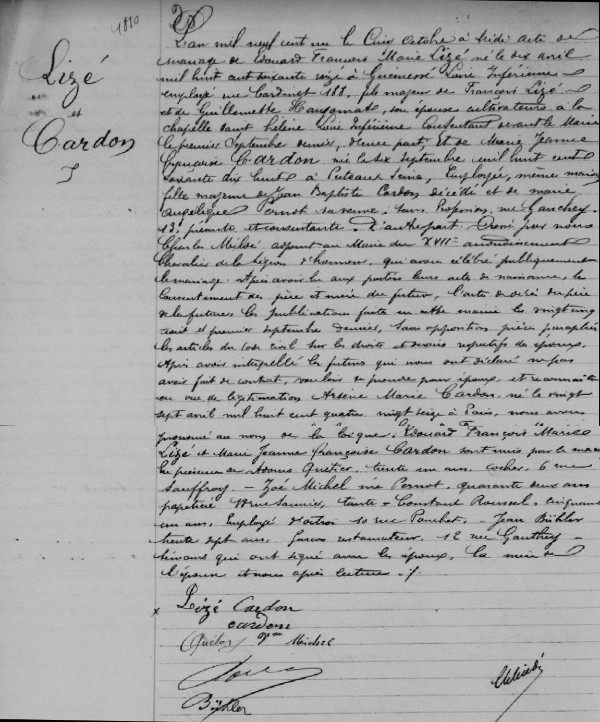 1810
Lizé
et
Cardon
L'an mil neuf cent un le cinq octobre à midi acte de
mariage de Edouard François Marie Lizé né le dix avril
mil huit cent soixante seize à Guémené Loire Inférieure
employé rue Cardinet 188, fils majeur de François Lizé
et de Guillemette son épouse cultivateurs à la
chapelle Saint hélène Loire Inférieure consentant devant le Maire
le premier Septembre dernier, d'une part, et de Marie Jeanne
françoise Cardon née le six septembre mil huit cent
soixante dix huit à Puteaux Seine, Employée, même maison
fille majeure de Jean Baptiste Cardon décédé et de marie
angélique Pernot sa veuve, sans Profession, rue Gauthey
13, présente et consentante, d'autre part. Dressé par nous
Charles adjoint au Maire du XVIIe arrondissement
Chevalier de la Légion d'honneur, qui avons célébré publiquement
le mariage. Après avoir lu aux parties leurs actes de naissance, le
consentement des père et mère du futur, l'acte de décès du père
de la future, les publications faites en cette mairie les vingt cinq
août et premier septembre dernier, sans opposition pièces paraphées
les articles du code civil sur les droits et devoirs respectifs des époux,
Après avoir interpellé les futurs qui nous ont déclaré ne pas
avoir fait de contrat, vouloir se prendre pour époux, et reconnaître
en vue de légitimation Arsène Marie Cardon, né le vingt
sept avril mil huit cent quatre vingt seize à Paris, nous avons
prononcé au nom de la loi que Edouard François Marie
Lizé et Marie Jeanne françoise Cardon sont unis par le mariage
en présence de Quétier, trente un ans, cocher, 6 rue
Sauffroy - Zoé Michel née Pernot, quarante deux ans
papetière rue Saunier, tante - Constant Roussel, cinquante
un ans, Employé d'octroi 10 rue Pouchet, - Jean Bühler
trente sept ans, Garçon restaurateur, 12 rue Gauthey -
témoins qui ont signé avec les époux, la mère de
l'épouse et nous après lecture ./.
Lizé Cardon
Cardon
Michel
Bühler